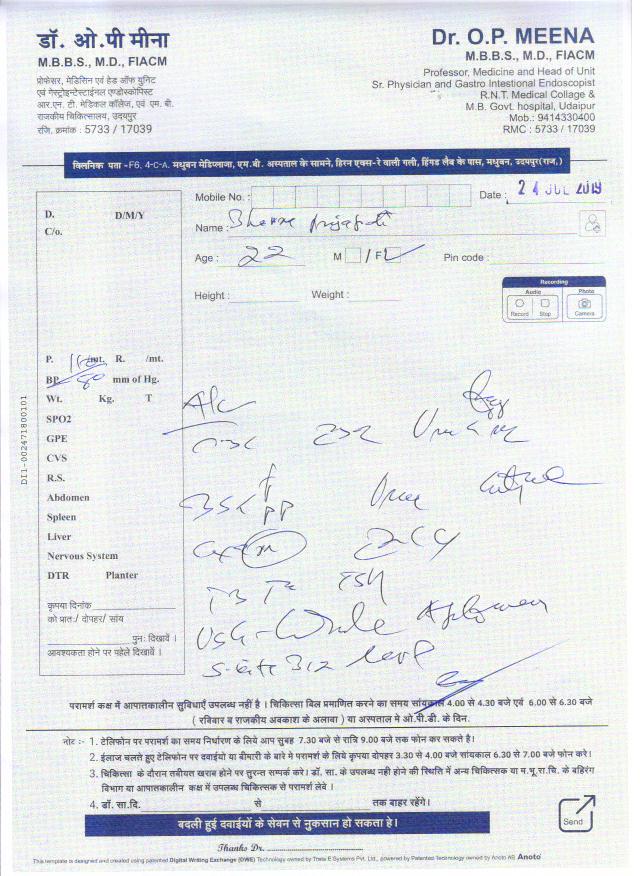 डॉ. ओ.पी मीना
M.B.B.S., M.D., FIACM
प्रोफेसर, मेडिसिन एवं हेड ऑफ युनिट
एवं गेस्ट्रोइन्टेस्टाईनल एण्डोस्कोपिस्ट
आर.एन. टी. मेडिकल कॉलेज, एवं एम. बी.
राजकीय चिकित्सालय, उदयपुर
रजि. क्रमांक : 5733 / 17039
Dr. O.P. MEENA
M.B.B.S., M.D., FIACM
Professor, Medicine and Head of Unit
Sr. Physician and Gastro Intestional Endoscopist
R.N.T. Medical Collage &
M.B. Govt. hospital, Udaipur
Mob.: 9414330400
RMC : 5733 / 17039
क्लिनिक पता -F6, 4-C-A, मधुबन मेडिप्लाजा, एम.बी. अस्पताल के सामने, हिरन एक्स-रे वाली गली, हिंगड लैब के पास, मधुबन, उदयपुर(राज,)
Mobile No. :
Date : 24 JUL 2019
D. D/M/Y
C/o.
Name :
Age : 22 M / F Pin code :
Height : Weight :
Recording
Audio Photo
Record Stop Camera
P. /mt. R. /mt.
BP. 80 mm of Hg.
Wt. Kg. T
SPO2
GPE
CVS
R.S.
Abdomen
Spleen
Liver
Nervous System
DTR Planter
कृपया दिनांक
को प्रातः/ दोपहर/ सांय
पुनः दिखावें ।
आवश्यकता होने पर पहले दिखावें ।
DI1-002471800101
ESR
T3 T4 TSH
USG - Whole Abdomen
B12 level
परामर्श कक्ष में आपातकालीन सुविधाएँ उपलब्ध नहीं है । चिकित्सा बिल प्रमाणित करने का समय सांयकाल 4.00 से 4.30 बजे एवं 6.00 से 6.30 बजे
( रविवार व राजकीय अवकाश के अलावा ) या अस्पताल मे ओ.पी.डी. के दिन.
नोट :- 1. टेलिफोन पर परामर्श का समय निर्धारण के लिये आप सुबह 7.30 बजे से रात्रि 9.00 बजे तक फोन कर सकते है।
2. ईलाज चलते हुए टेलिफोन पर दवाईयो या बीमारी के बारे मे परामर्श के लिये कृपया दोपहर 3.30 से 4.00 बजे सांयकाल 6.30 से 7.00 बजे फोन करे।
3. चिकित्सा के दौरान तबीयत खराब होने पर तुरन्त सम्पर्क करे। डॉ. सा. के उपलब्ध नही होने की स्थिति में अन्य चिकित्सक या म.भू.रा.चि. के बहिरंग
विभाग या आपातकालीन कक्ष में उपलब्ध चिकित्सक से परामर्श लेवे ।
4. डॉ. सा.दि. से तक बाहर रहेंगे।
Send
बदली हुई दवाईयों के सेवन से नुकसान हो सकता हे।
Thanks Dr.
This template is designed and created using patented Digital Writing Exchange (DWE) Technology owned by Theta E Systems Pvt. Ltd., powered by Patented Technology owned by Anoto AB Anoto